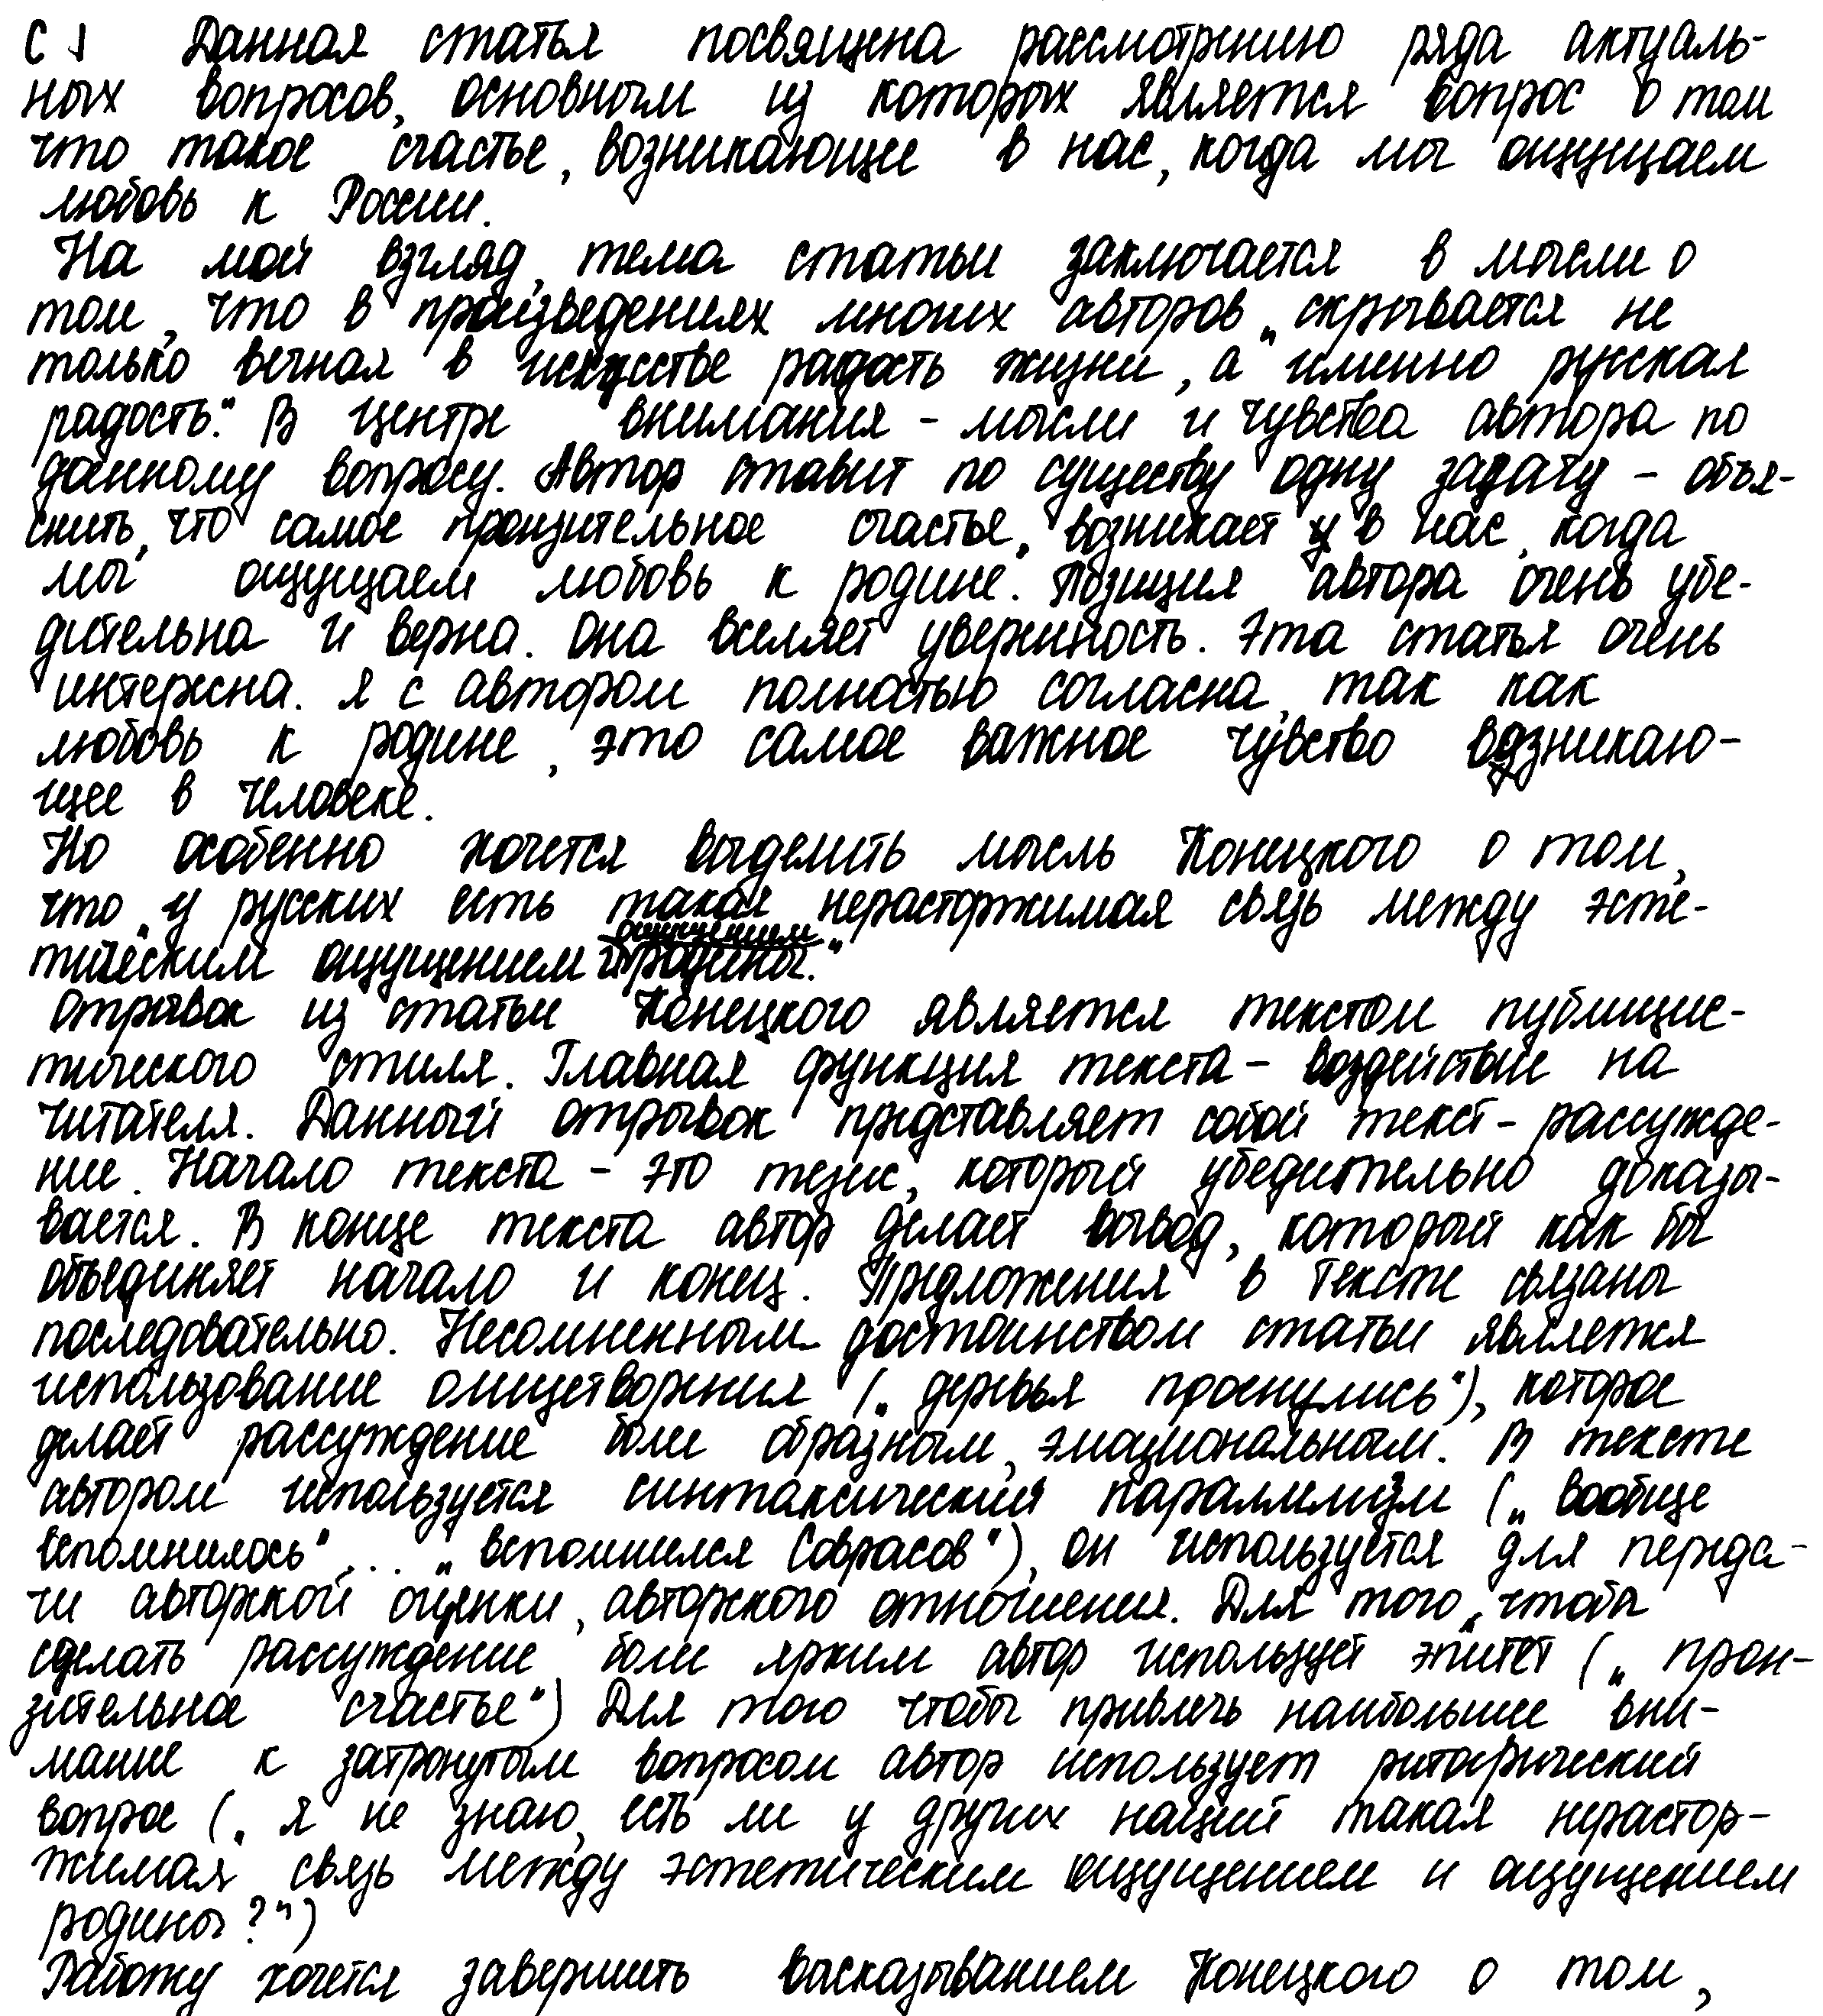 С 1 Данная статья посвящена рассмотрению ряда актуаль-
ных вопросов, основным из которых является вопрос о том
что такое счастье, возникающее в нас, когда мы ощущаем
любовь к России.
На мой взгляд, тема статьи заключается в мысли о
том, что в произведениях многих авторов „скрывается не
только вечная в искусстве радость жизни, а именно русская
радость." В центре внимания - мысли и чувства автора по
данному вопросу. Автор ставит по существу одну задачу - объя-
снить, что самое пронзительное счастье, возникает у в нас, когда
мы ощущаем любовь к родине. Позиция автора очень убе-
дительна и верна. Она вселяет уверенность. Эта статья очень
интересна. Я с автором полностью согласна, так как
любовь к родине, это самое важное чувство возникаю-
щее в человеке.
Но особенно хочется выделить мысль Конецкого о том,
что „у русских есть такая нерасторжимая связь между эсте-
ощущением
тическим ощущением и родины."
Отрывок из статьи Конецкого является текстом публицис-
тического стиля. Главная функция текста - воздействие на
читателя. Данный отрывок представляет собой текст - рассужде-
ние. Начало текста - это тезис, который убедительно доказы-
вается. В конце текста автор делает вывод, который как бы
объединяет начало и конец. Предложения в тексте связаны
последовательно. Несомненным достоинством статьи является
использование олицетворения („деревья проснулись"), которое
делает рассуждение более образным, эмоциональным. В тексте
автором используется синтаксический параллелизм („вообще
вспомнилось"... „вспомнился Соврасов"), он используется для переда-
чи авторской оценки, авторского отношения. Для того, чтобы
сделать рассуждение более ярким автор использует эпитет („прон-
зительное счастье") Для того чтобы привлечь наибольшее вни-
мание к затронутым вопросом автор использует риторический
вопрос („Я не знаю, есть ли у других наций такая нерастор-
жимая связь между эстетическим ощущением и ощущением
родины?")
Работу хочется завершить высказыванием Конецкого о том,